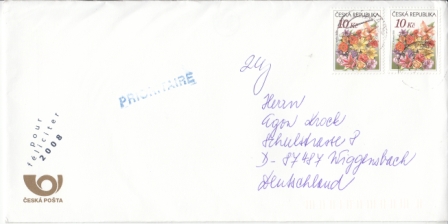 ČESKÁ REPUBLIKA
10 Kč
ČESKÁ REPUBLIKA
10 Kč
PRIORITAIRE
Herrn
Agon
Schulstrasse 8
D-87487 Wiggensbach
Deutschland
pour
féliciter
2008
ČESKÁ POŠTA